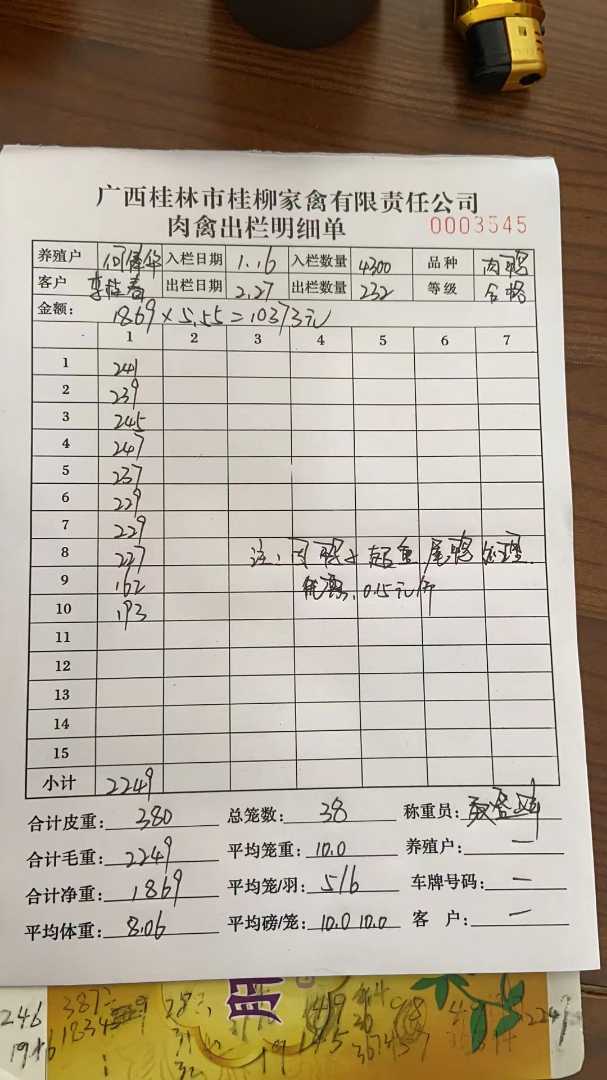 广西桂林市桂柳家禽有限责任公司
肉禽出栏明细单 0003545
养殖户 何 华 入栏日期 1.16 入栏数量 4300 品种 肉鸭
客户 李桂春 出栏日期 2.27 出栏数量 232 等级 合格
金额: 1869×5.55=10373元
1 2 3 4 5 6 7
1 241
2 239
3 245
4 247
5 237
6 229
7 229
8 227
9 162
10 193
注:肉鸭 超重尾鸭处理
优惠0.15元/斤
11
12
13
14
15
小计 2249
合计皮重: 380 总笼数: 38 称重员:
合计毛重: 2249 平均笼重: 10.0 养殖户: 一
合计净重: 1869 平均笼/羽: 5/6 车牌号码: 一
平均体重: 8.06 平均磅/笼: 10.0 10.0 客 户: 一
246 387 2249
1946